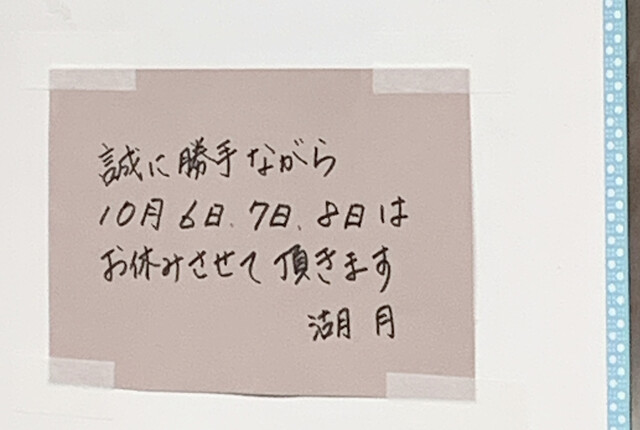 誠に勝手ながら
10月6日、7日、8日は
お休みさせて頂きます
湖月